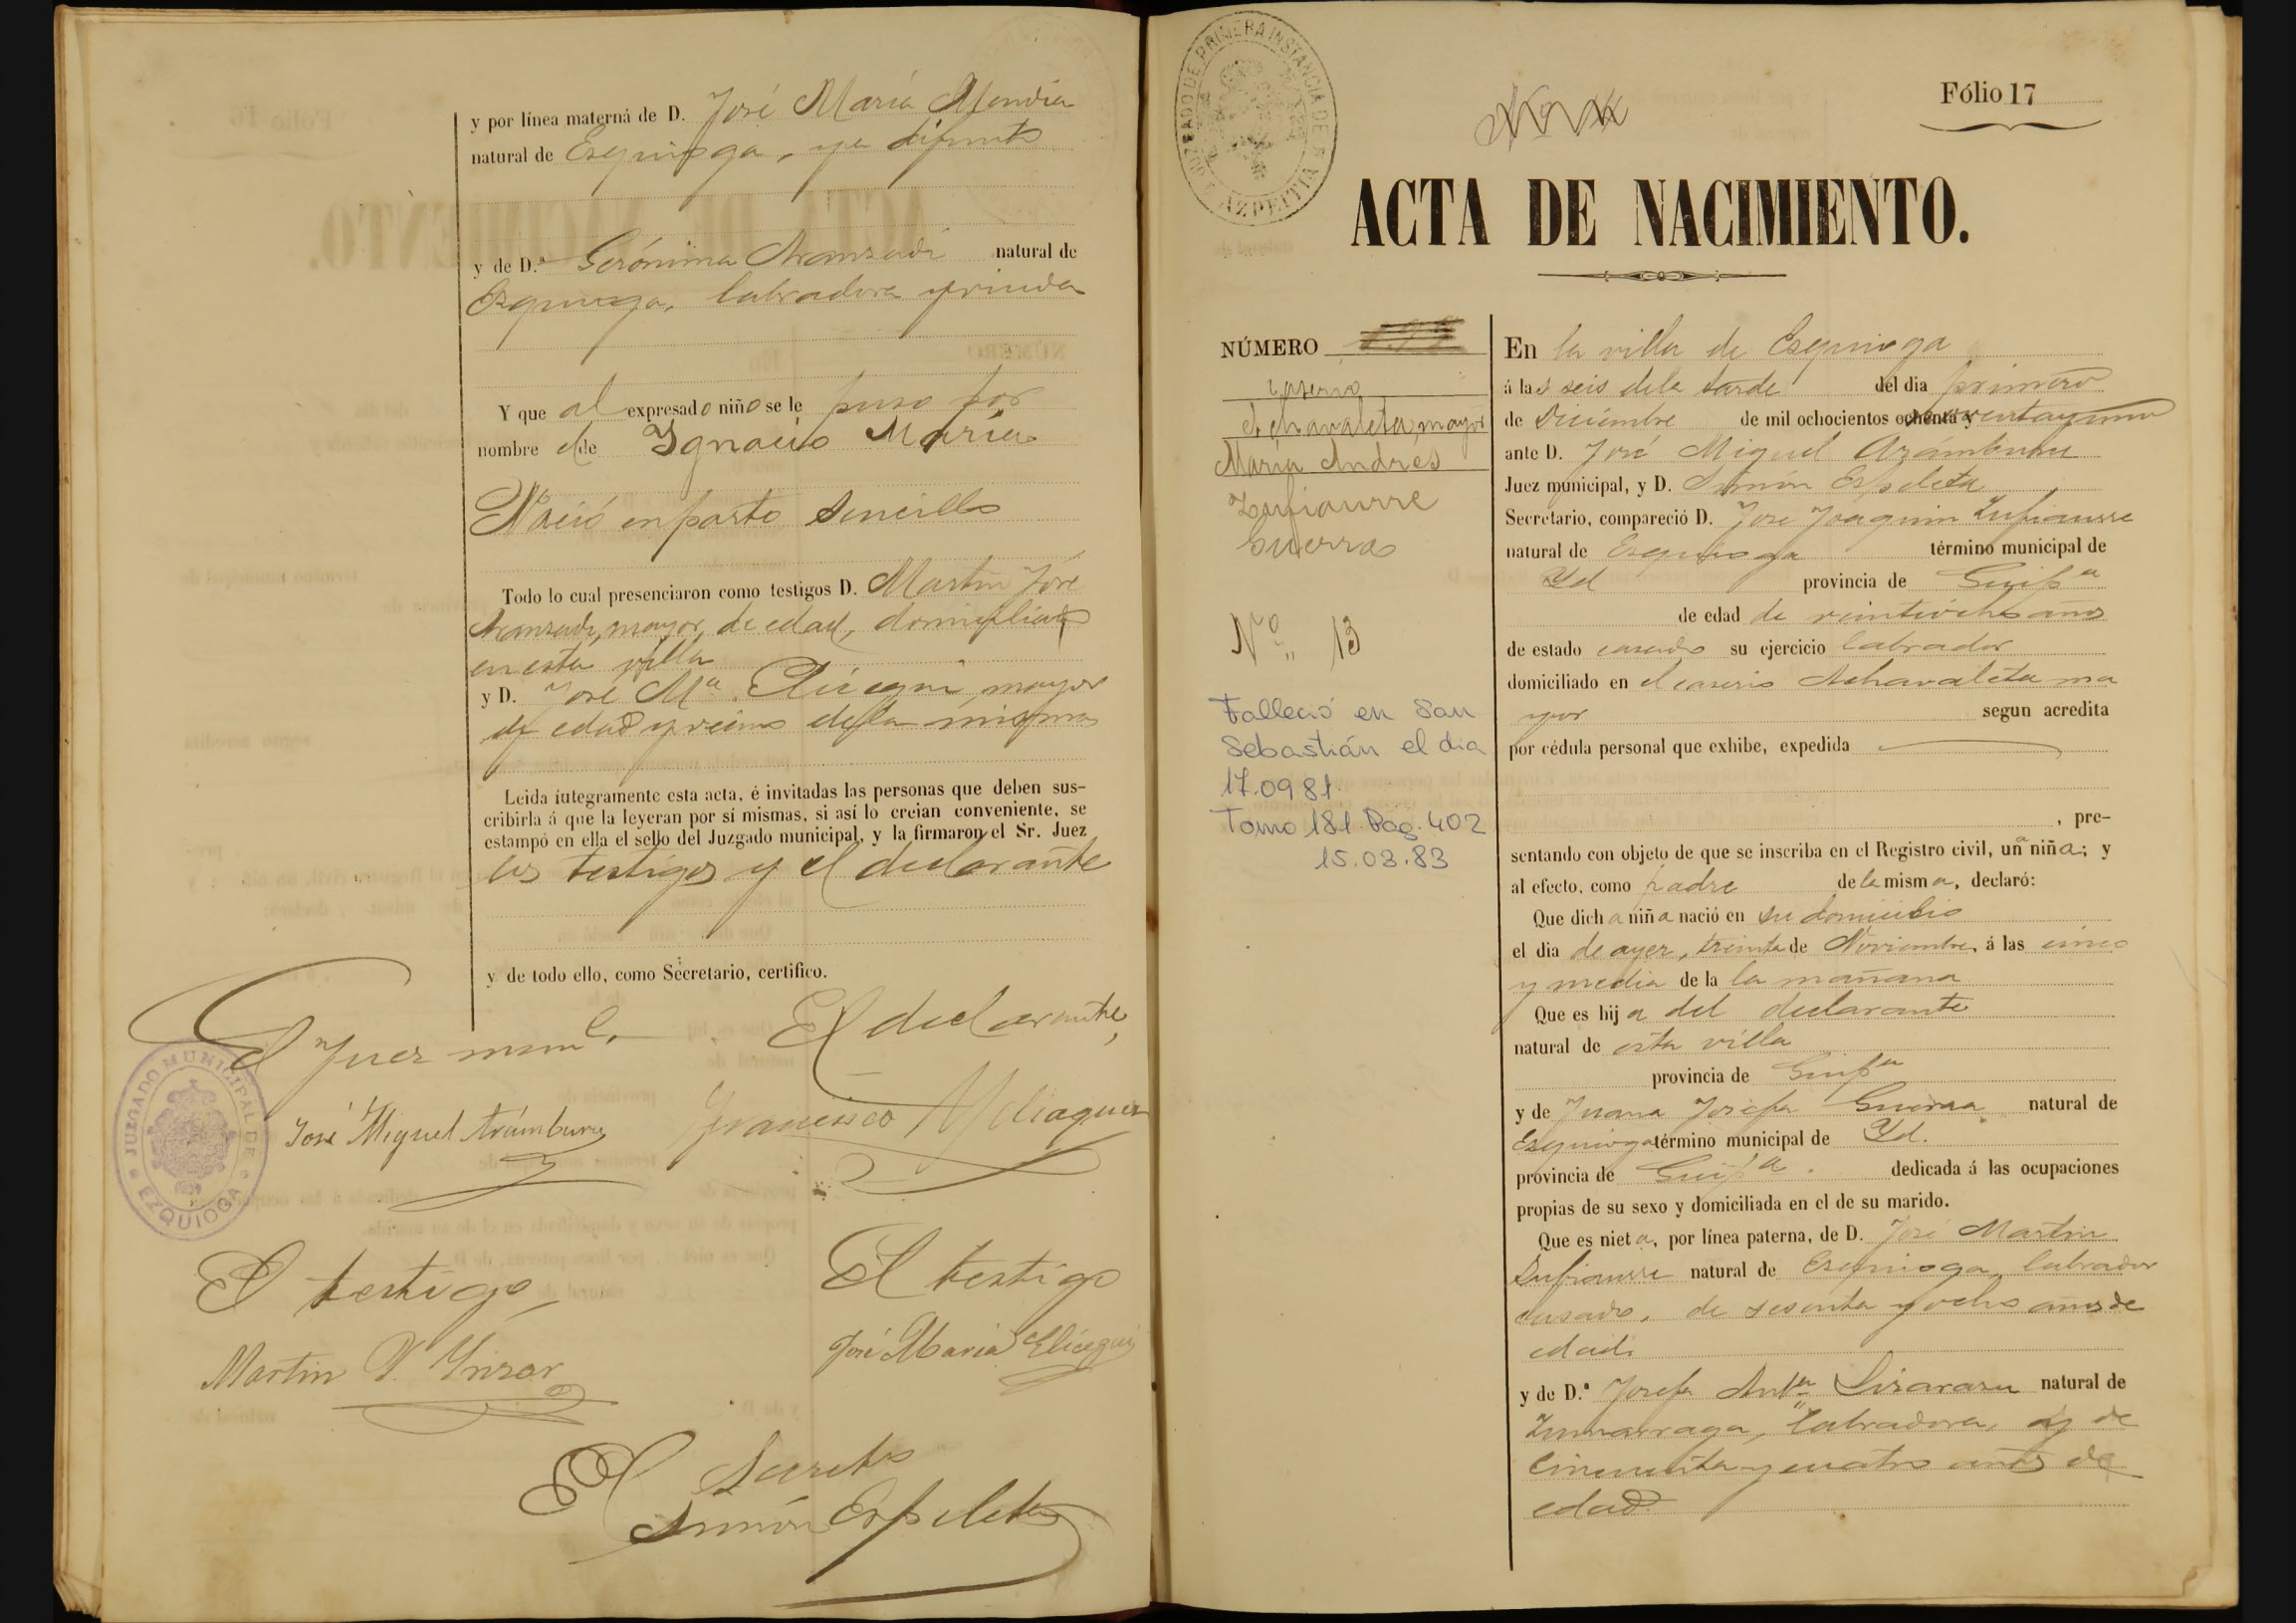 y por línea materna de D. José María Mendia
natural de Ezquioga, ya difunto
y de D.ª Gerónima Aranzadi natural de
Ezquioga, labradora y viuda
Y que al expresado niño se le puso por
nombre de Ygnacio María
Nació en parto sencillo
Todo lo cual presenciaron como testigos D. Martin José
Aranzadi, mayor de edad, domiciliado
en esta villa
y D. José M.ª Elicegui, mayor
de edad y vecino de la misma
Leida íntegramente esta acta, é invitadas las personas que deben sus-
cribirla á que la leyeran por sí mismas, si así lo creian conveniente, se
estampó en ella el sello del Juzgado municipal, y la firmaron el Sr. Juez
los testigos y el declarante
y de todo ello, como Secretario, certifico.
El Juez mun.l
El declarante,
José Miguel Arámburu
Francisco
JUZGADO MUNICIPAL DE EZQUIOGA
El testigo
El testigo
Martin
José Maria Elicegui
El Secreto
Simón Espeleta
JUZGADO DE PRIMERA INSTANCIA DE AZPEITIA
Fólio 17
ACTA DE NACIMIENTO.
NÚMERO
Caserio
Achavaleta mayor
María Andres
Zufiaurre
Guerra
Nº 13
Falleció en San
Sebastián el dia
17.09 81.
Tomo 181. Pag. 402
15.03.83
En la villa de Ezquioga
á las seis de la tarde del dia primero
de Diciembre de mil ochocientos ochenta y noventa y uno
ante D. José Miguel Arámburu
Juez municipal, y D. Simón Espeleta
Secretario, compareció D. José Joaquin Zufiaurre
natural de Ezquioga término municipal de
Yd provincia de Guip.ª
de edad de veintiocho años
de estado casado su ejercicio labrador
domiciliado en el caserio Achavaleta ma
yor segun acredita
por cédula personal que exhibe, expedida
, pre-
sentando con objeto de que se inscriba en el Registro civil, una niña; y
al efecto, como padre de la misma, declaró:
Que dicha niña nació en su domicilio
el dia de ayer, treinta de Noviembre á las cinco
y media de la la mañana
Que es hija del declarante
natural de esta villa
provincia de Guip.ª
y de Juana Josefa Guerra natural de
Ezquioga término municipal de Yd.
provincia de Guip.ª dedicada á las ocupaciones
propias de su sexo y domiciliada en el de su marido.
Que es nieta, por línea paterna, de D. José Martin
Zufiaurre natural de Ezquioga, labrador
casado, de sesenta y ocho años de
edad.
y de D.ª Josefa Ant.ª Lizarazu natural de
Zumarraga, labradora, y de
cincuenta y cuatro años de
edad